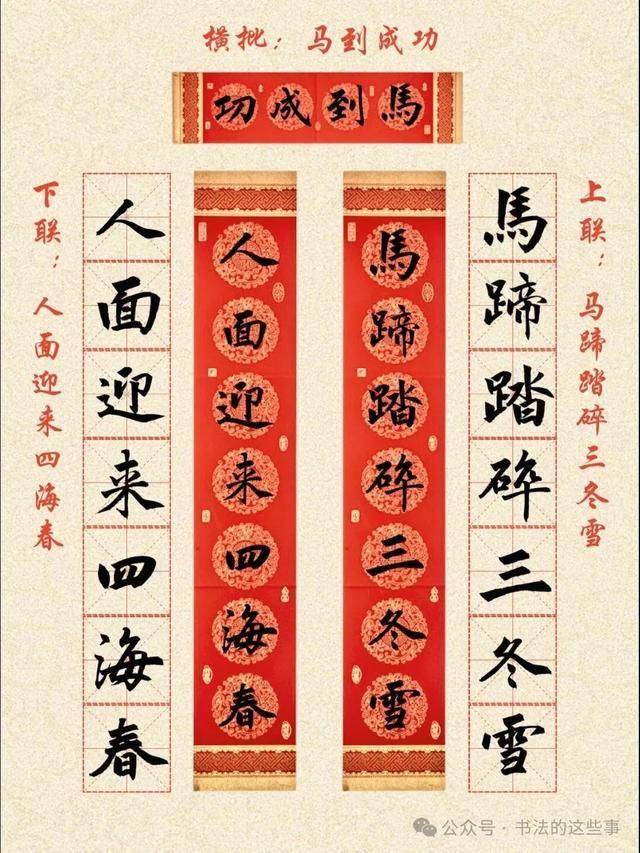 横批：马到成功
功成到馬
上联：马蹄踏碎三冬雪
馬蹄踏碎三冬雪
馬蹄踏碎三冬雪
人面迎来四海春
人面迎来四海春
下联：人面迎来四海春
公众号·书法的这些事